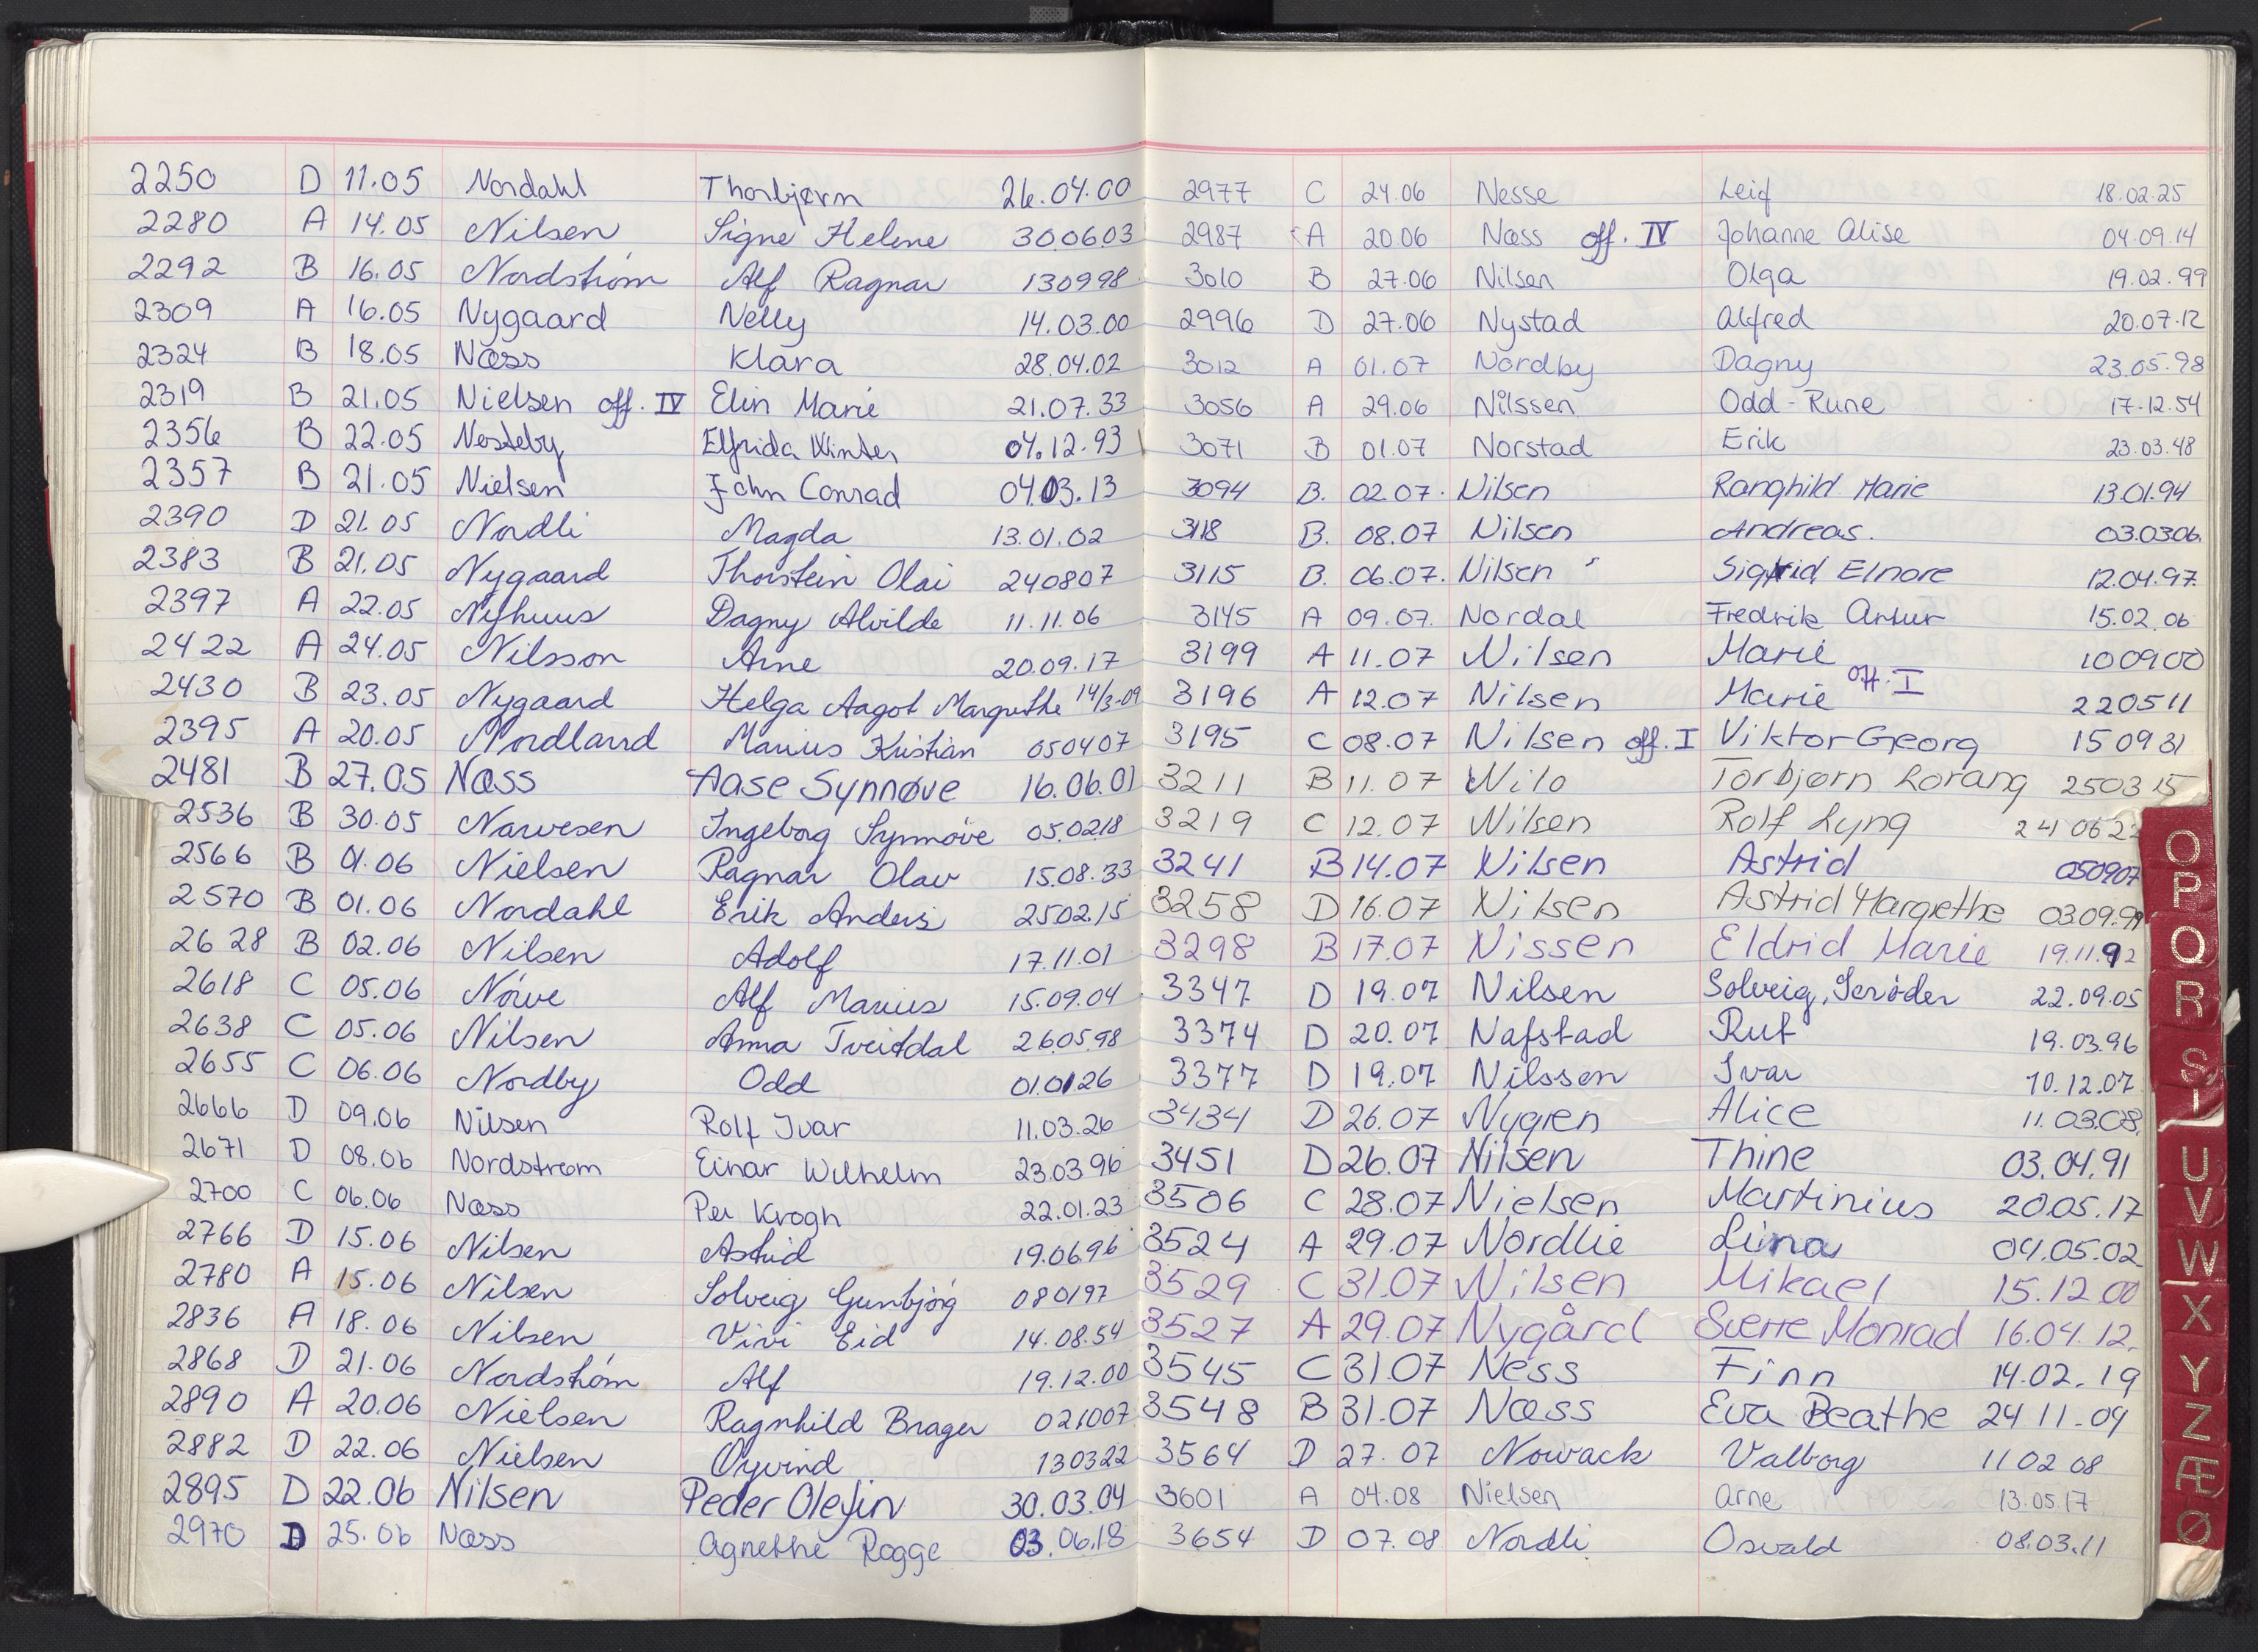 2250 D 11.05 Nordahl Thorbjørn 26.04.00
2280 A 14.05 Nilsen Signe Helene 300603
2292 B 16.05 Nordstrøm Alf Ragnar 130998
2309 A 16.05 Nygaard Nelly 14.03.00
2324 B 18.05 Næss Klara 28.04.02
2319 B 21.05 Nielsen off. IV Elin Marie 21.07.33
2356 B 22.05 Nesteby Elfrida Winter 04.12.93
2357 B 21.05 Nielsen John Conrad 04.03.13
2390 D 21.05 Nordli Magda 13.01.02
2383 B 21.05 Nygaard Thorstein Olai 240807
2397 A 22.05 Nyhuus Dagny Alvilde 11.11.06
2422 A 24.05 Nilsson Arne 20.09.17
2430 B 23.05 Nygaard Helga Aagot Margrethe 14/3-09
2395 A 20.05 Nordland Marius Kristian 050407
2481 B 27.05 Næss Aase Synnøve 16.06.01
2536 B 30.05 Narvesen Ingeborg Synnøve 05.0218
2566 B 01.06 Nielsen Ragnar Olav 15.08.33
2570 B 01.06 Nordahl Erik Anders 2502.15
2628 B 02.06 Nilsen Adolf 17.11.01
2618 C 05.06 Nørve Alf Marius 15.09.04
2638 C 05.06 Nilsen Anna Tveitdal 26.05.98
2655 C 06.06 Nordby Odd 01.01.26
2666 D 09.06 Nilsen Rolf Ivar 11.03.26
2671 D 08.06 Nordstrøm Einar Wilhelm 23.03.96
2700 C 06.06 Næss Per Krogh 22.01.23
2766 D 15.06 Nilsen Astrid 19.06.96
2780 A 15.06 Nilsen Solveig Gunbjørg 080197
2836 A 18.06 Nilsen Vivi Eid 14.08.54
2868 D 21.06 Nordstrøm Alf 19.12.00
2890 A 20.06 Nielsen Ragnhild Brager 021007
2882 D 22.06 Nielsen Øyvind 130322
2895 D 22.06 Nilsen Peder Olefin 30.03.04
2970 D 25.06 Næss Agnethe Rogge 03.06.18
2977 C 24.06 Nesse Leif 18.02.25
2987 A 20.06 Næss off. IV Johanne Alise 04.09.14
3010 B 27.06 Nilsen Olga 19.02.99
2996 D 27.06 Nystad Alfred 20.07.12
3012 A 01.07 Nordby Dagny 23.05.98
3056 A 29.06 Nilssen Odd-Rune 17.12.54
3071 B 01.07 Norstad Erik 23.03.48
3094 B. 02.07. Nilsen Ranghild Marie 13.01.94
3118 B. 08.07 Nilsen Andreas. 03.0306.
3115 B. 06.07. Nilsen Sigrid Elnore 12.04.97.
3145 A 09.07. Nordal Fredrik Artur 15.02.06
3199 A 11.07 Nilsen Marie 100900
3196 A 12.07 Nilsen Marie off. I 220511
3195 C 08.07 Nilsen off. I Viktor Georg 150931
3211 B 11.07 Nilo Torbjørn Lorang 250315
3219 C 12.07 Nilsen Rolf Lyng 240622
3241 B 14.07 Nilsen Astrid 050907
3258 D 16.07 Nilsen Astrid Margrethe 0309.99
3298 B 17.07 Nissen Eldrid Marie 19.11.92
3347 D 19.07 Nilsen Solveig, Scrøder 22.09.05
3374 D 20.07 Nafstad Rut 19.03.96
3377 D 19.07 Nilssen Ivar 10.12.07
3434 D 26.07 Nygren Alice 11.03.08.
3451 D 26.07 Nilsen Thine 03.04.91
3506 C 28.07 Nielsen Martinius 20.05.17
3524 A 29.07 Nordlie Lina 04.05.02
3529 C 31.07 Nilsen Mikael 15.12.00
3527 A 29.07 Nygård Sverre Monrad 16.04.12.
3545 C 31.07 Ness Finn 14.02.19
3548 B 31.07 Næss Eva Beathe 24 11.04
3564 D 27.07 Nowack Valborg 11 02 08
3601 A 04.08 Nielsen Arne 13.05.17
3654 D 07.08 Nordli Osvald 08.03.11
O
P
Q
R
S
T
U
V
W
X
Y
Z
Æ
Ø